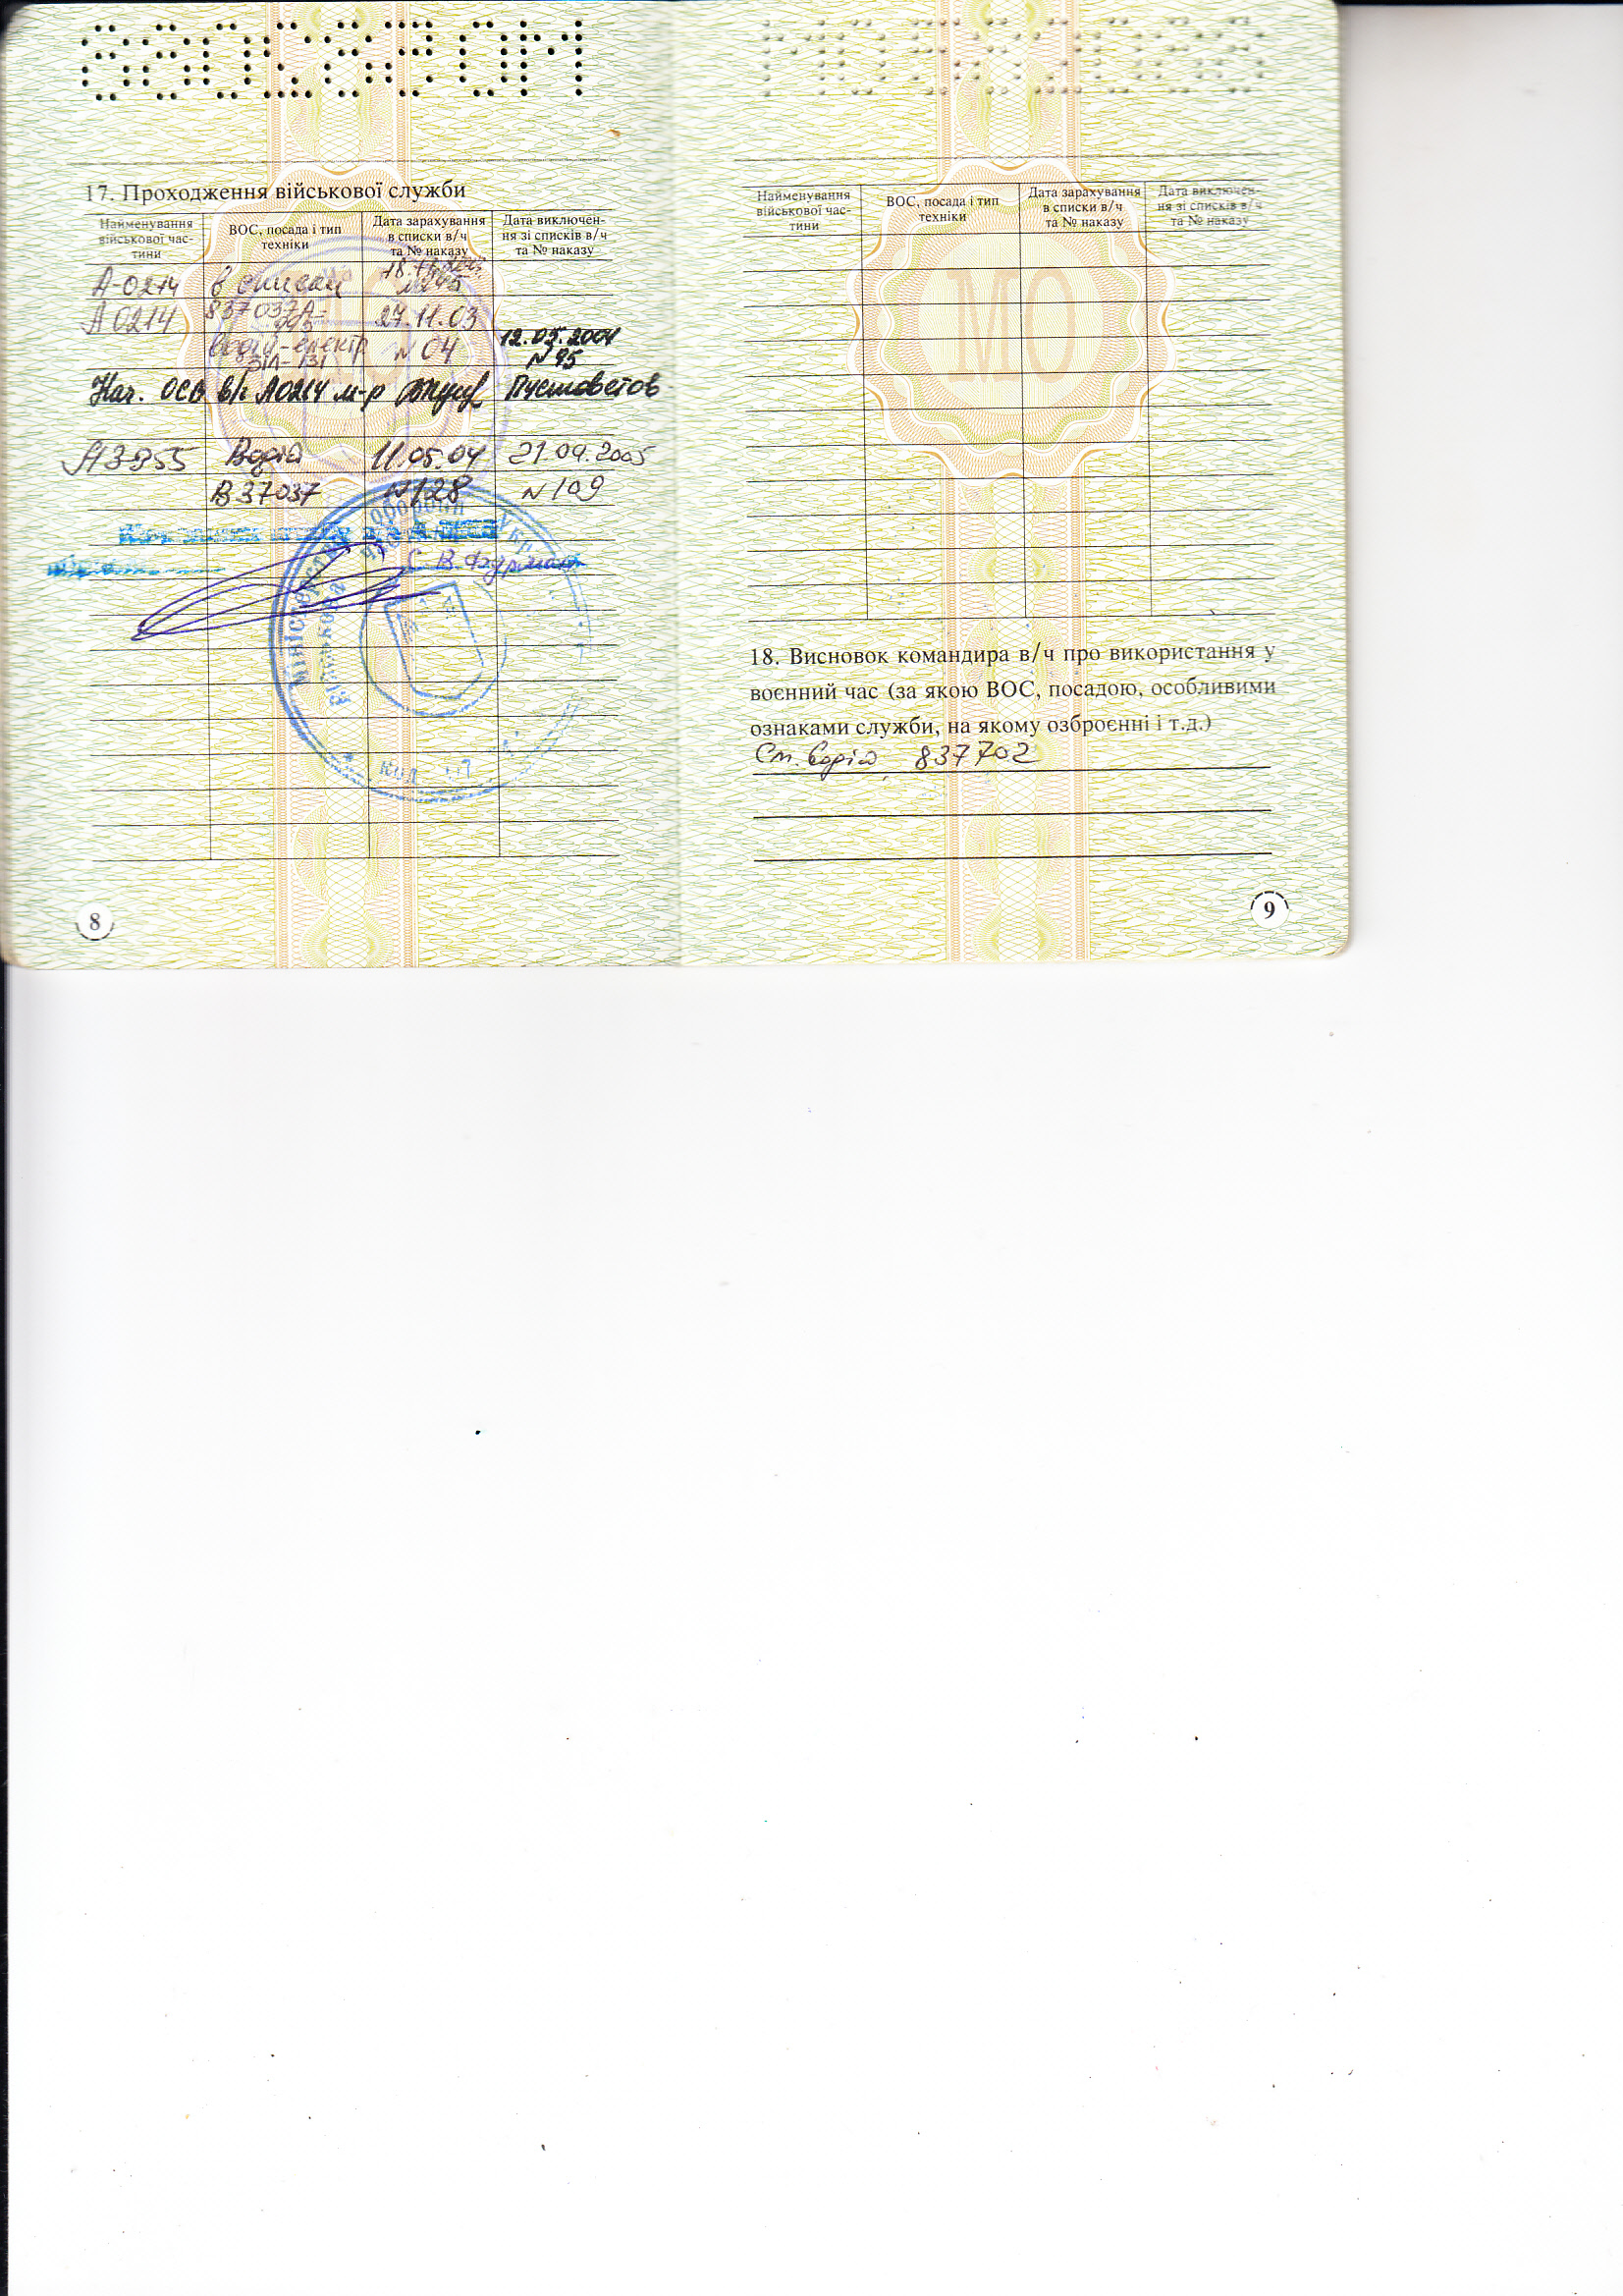 17. Проходження військової служби
Найменування військової час-тини
ВОС, посада і тип техніки
Дата зарахування в списки в/ч та № наказу
Дата виключен-ня зі списків в/ч та № наказу
А-0214 в списки
А0214 837037А- 27.11.03
водій-електр №04 12.05.2004
ЗІЛ-131 №95
Нач. ОСВ в/ч А0214 м-р Пустоветов
Водій 11.05.04 21.04.2005
В37037 №128 №109
Міністерство оборони
С.В. Фурман
код
8
Найменування військової час-тини
ВОС, посада і тип техніки
Дата зарахування в списки в/ч та № наказу
Дата виключен-ня зі списків в/ч та № наказу
МО
18. Висновок командира в/ч про використання у
воєнний час (за якою ВОС, посадою, особливими
ознаками служби, на якому озброєнні і т.д.)
Ст. водій 837702
9